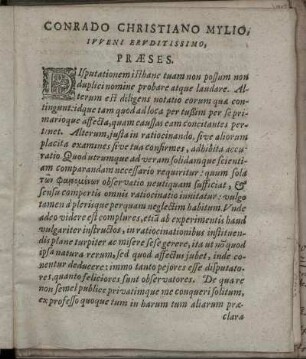 CONRADO CHRISTIANO MYLIO,
IVVENI ERVDITISSIMO,
PRÆSES.
DIsputationem isthanc tuam non possum non
duplici nomine probare atque laudare. Al-
terum est diligens notatio eorum quæ con-
tingunt: idque tam quod ad loca per tußim per se pri-
marioque affecta, quam caussas eam concitantes per-
tinet. Alterum, justa in ratiocinando, sive aliorum
placita examines sive tua confirmes, adhibita accu-
ratio. Quod utrumque ad veram solidamque scienti-
am comparandam necessario requiritur: quum sola
τῶν φαινομένων observatio neutiquam sufficiat, &
sensu compertis omnis ratiocinatio innitatur: vulgo
tamen à plerisque perquam neglectim habitum. Vnde
adeo videre est complures, etiã ab experimentis haud
vulgariter instructos, in ratiocinationibus instituen-
dis plane turpiter ac misere sese gerere, ita ut nõ quod
ipsa natura rerum, sed quod affectus jubet, inde co-
nentur deducere: immo tanto pejores esse disputato-
res, quanto feliciores sunt observatores. De qua re
non semel publice privatimque me conqueri solitum,
ex professo quoque tum in harum tum aliarum præ-
clara